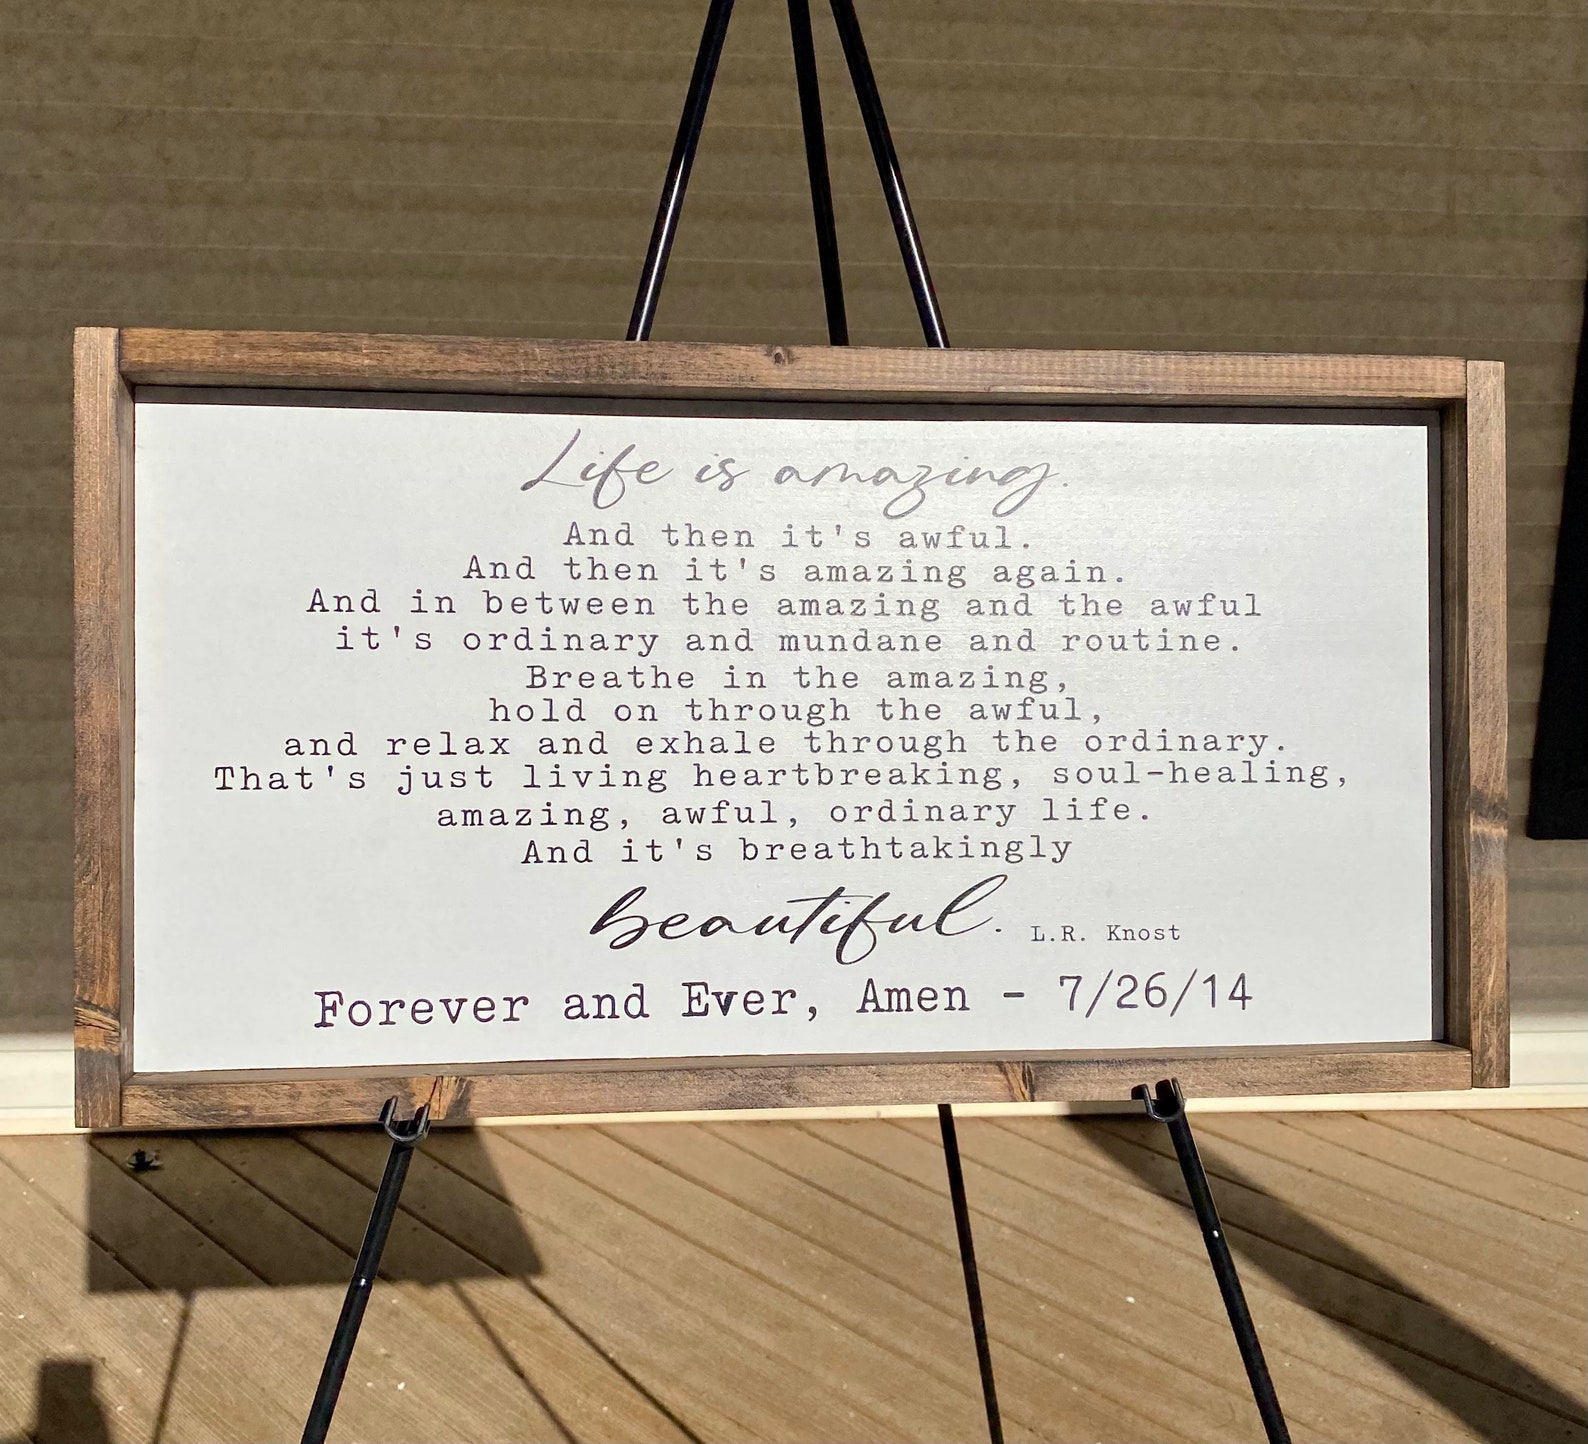 Life is amazing.
And then it's awful.
And then it's amazing again.
And in between the amazing and the awful
it's ordinary and mundane and routine.
Breathe in the amazing,
hold on through the awful,
and relax and exhale through the ordinary.
That's just living heartbreaking, soul-healing,
amazing, awful, ordinary life.
And it's breathtakingly
beautiful. L.R. Knost
Forever and Ever, Amen - 7/26/14